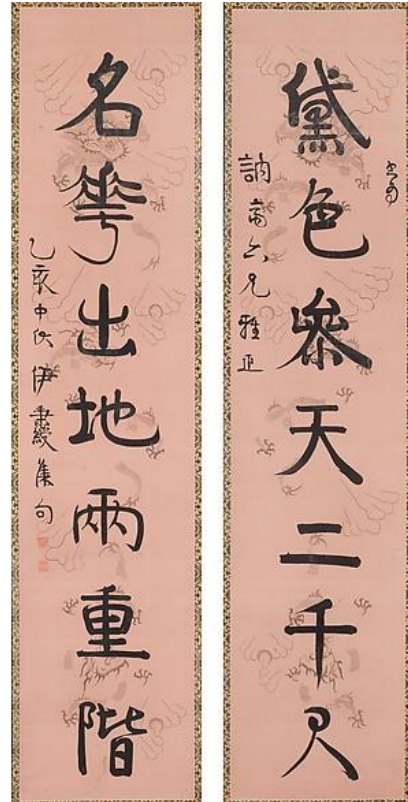 黛色參天二千尺
訥齋六兄雅正
名華出地兩重階
乙亥中伏伊秉綬集句